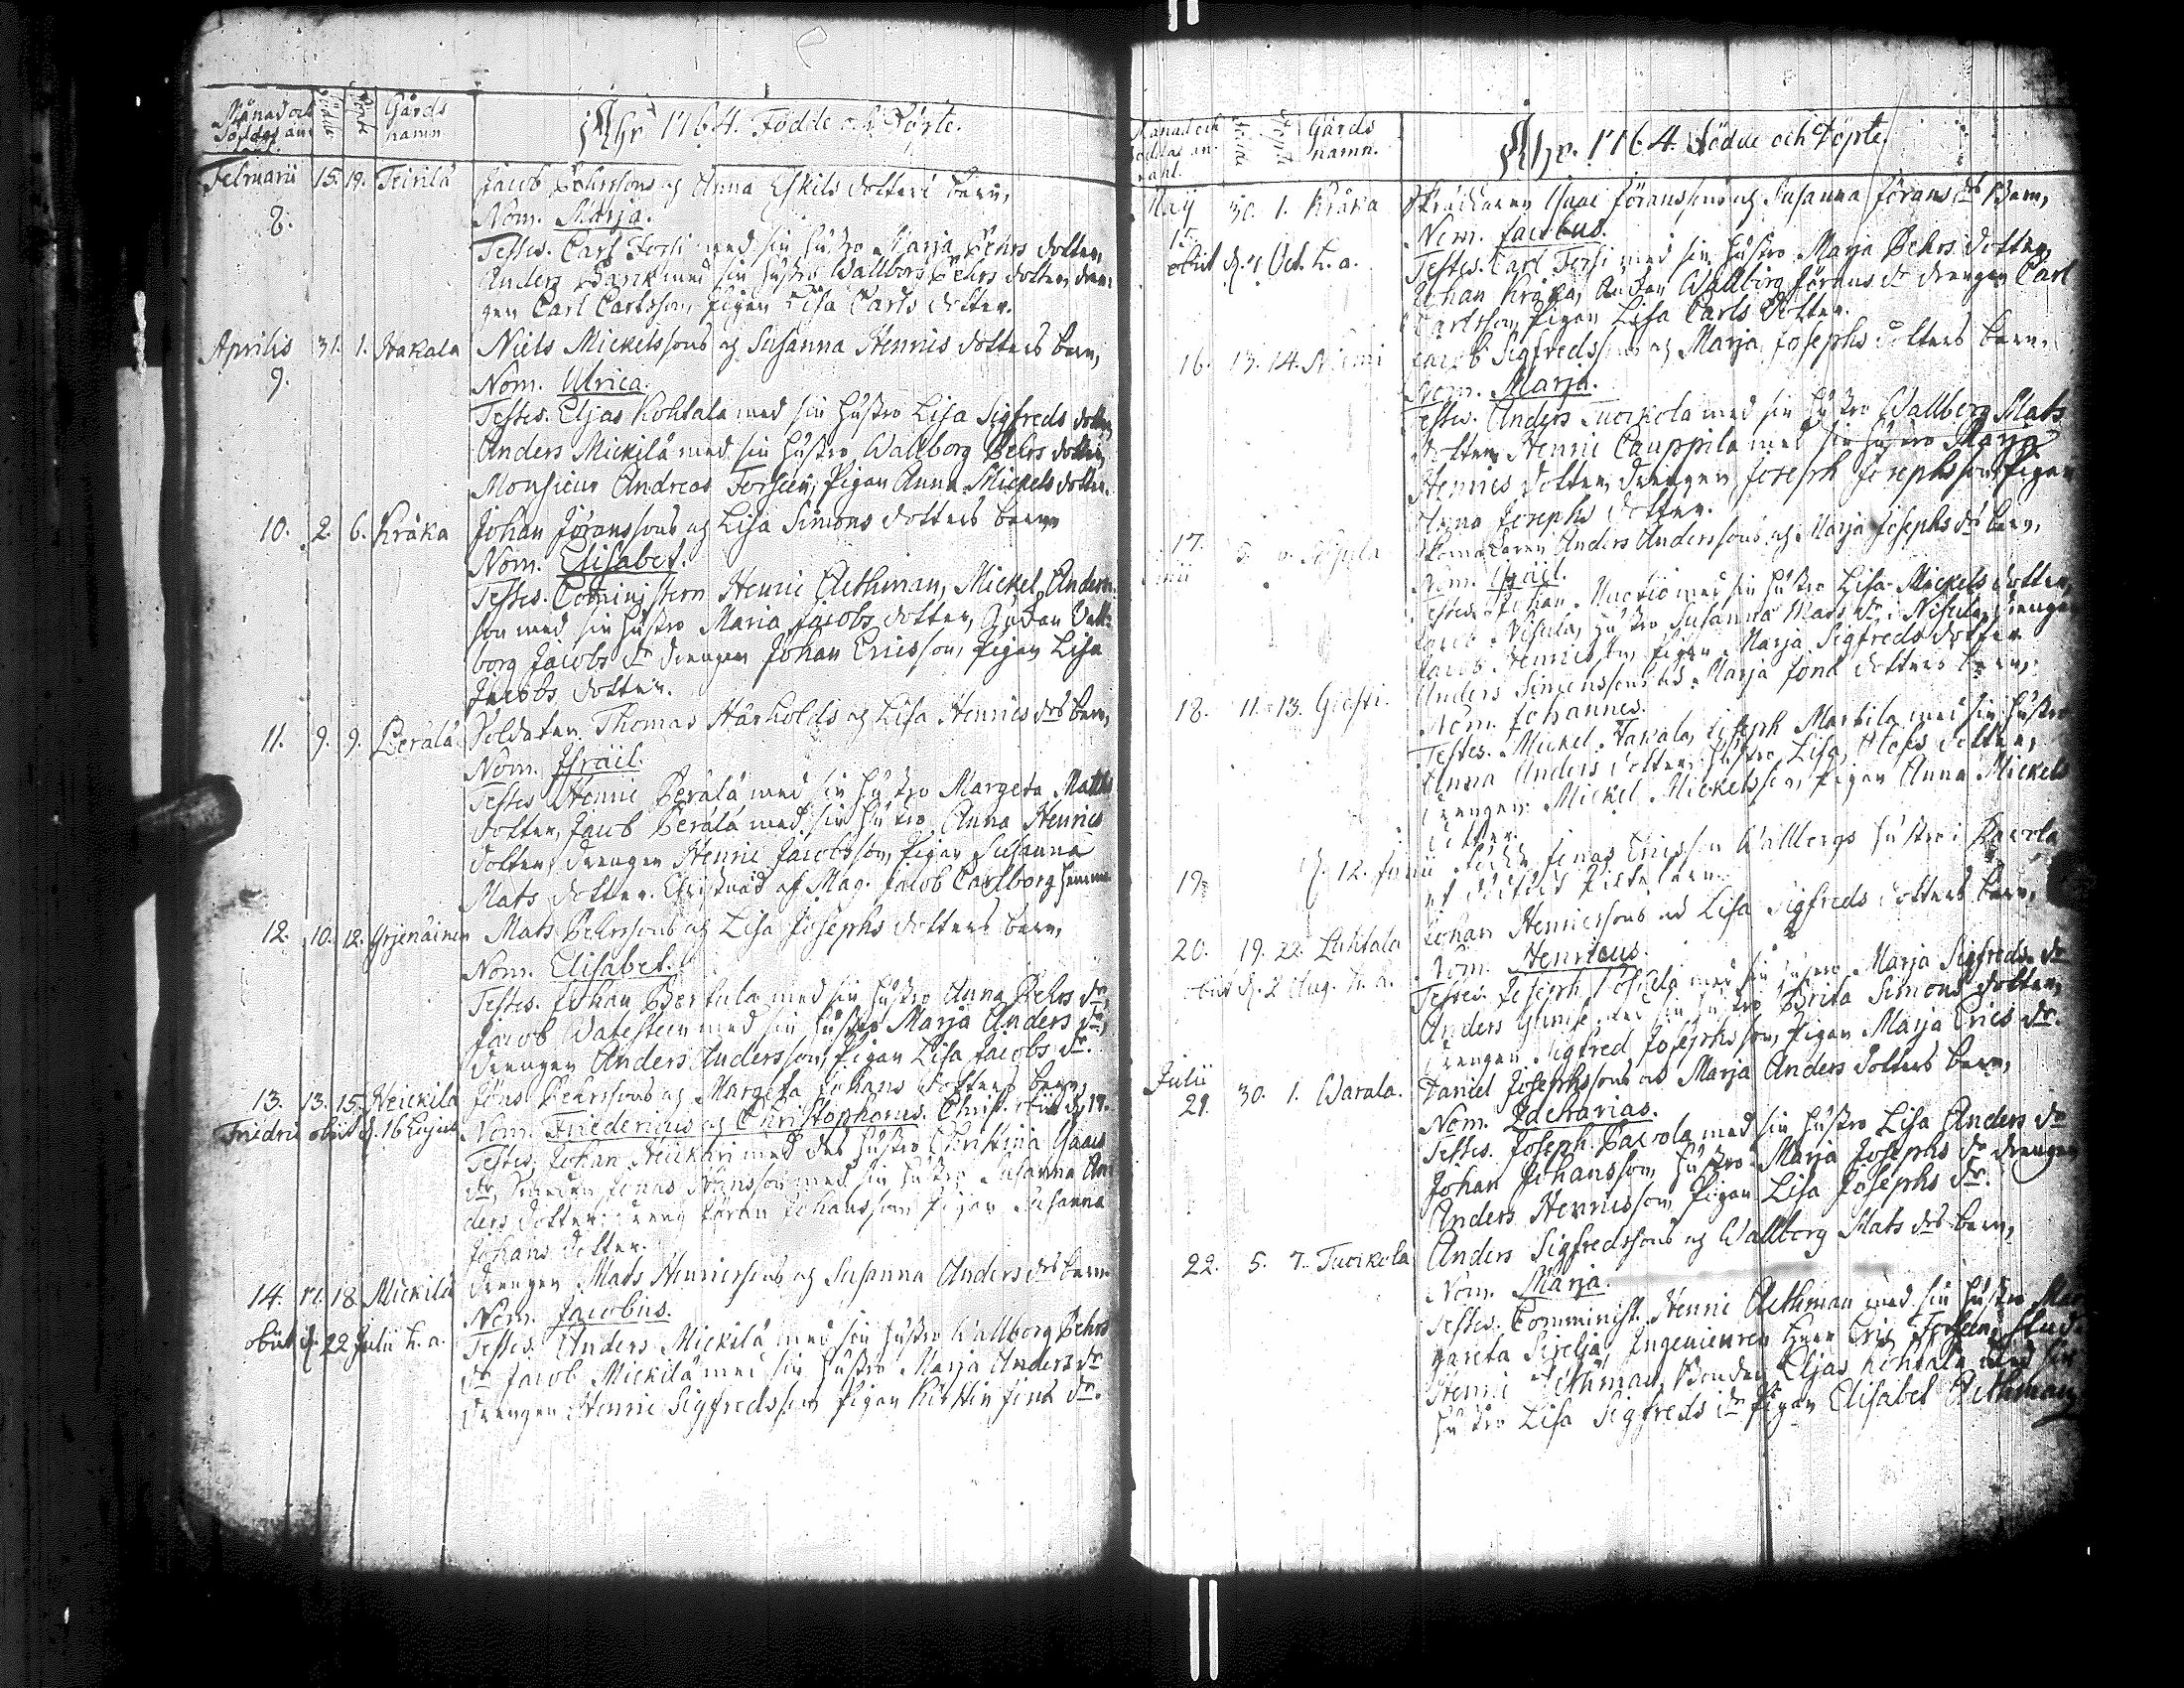 Månad och
Gårds
namn
Åhr 1764. Födde och Döpte.
Februarii 15. 19. Teirilä Jacob Pehrssons och Anna Eskils dotters barn,
8. Nom. Marja.
Testes. Carl Forsi med sin hustro Marja Pehrs dotter,
Anders Banck med sin hustro Wallborg Pehrs dotter, dren-
gen Carl Carlsson, Pigan Lisa Carls dotter.
Aprilis 31. 1. Hakala Niels Mickelssons och Susanna Henrics dotters barn,
9. Nom. Ulrica.
Testes. Eljas Kohtala med sin hustro Lisa Sigfreds dotter,
Anders Mickilä med sin hustro Wallborg Pehrs dotter,
Monsieur Andreas Forseen, Pigan Anna Mickels dotter.
10. 2. 6. Kråka Johan Jöranssons och Lisa Simons dotters barn
Nom. Elisabet.
Testes. Comministern Henric Aethman, Mickel Anders-
son med sin hustro Maria Jacobs dotter, Änkan Wall-
borg Jacobs dr drengen Johan Ericsson, Pigan Lisa
Jacobs dotter.
11. 9. 9. Perälä Soldaten Thomas Hårholds och Lisa Henrics drs barn,
Nom. Israël.
Testes Henric Perälä med sin hustro Margeta Matts
dotter, Jacob Perälä med sin hustro Anna Henrics
dotter, drengen Henric Jacobsson, Pigan Susanna
Mats dotter. Christnad af Mag. Jacob Carlborg hemma
12. 10. 12. Yrjenäinen Mats Pehrssons och Lisa Josephs dotters barn,
Nom. Elisabet.
Testes. Johan Pertula med sin hustro Anna Pehrs dr,
Jacob Watesteen med sin hustro Marja Anders dr,
drengen Anders Andersson, Pigan Lisa Jacobs dr.
13. 13. 15. Heickilä Jöns Pehrssons och Margeta Johans dotters barn,
Friedric obiit d. 16 hujus Nom. Friedericus och Christophorus. Christ. obiit d. 19.
Testes. Johan Heickari med des hustro Christina
dr, Jonas Jönsson med sin hustro Susanna An-
ders dotter, dreng Jöran Johansson, Pigan Susanna
Johans dotter.
14. 17. 18. Mickilä Drengen Mats Henricssons och Susanna Anders drs barn
Nom. Jacobus.
obiit d. 22 Julii h. a. Testes. Anders Mickilä med sin hustro Wallborg Pehrs
dr Jacob Mickilä med sin hustro Marja Anders dr
Drengen Henric Sigfredsson Pigan Kirstin Jöns dr.
Månad och
Gårds
namn.
Åhr. 1764. Födde och Döpte.
Maij 30. 1. Kråka Skräddaren Isaac Jöranssons och Susanna Jörans drs Barn,
15. Nom. Jacobus.
obiit d. Oct. h. a. Testes. Carl Forsi med sin hustro Marja Pehrs dotter,
Johan Kråka, Änkan Wallborg Jörans dr drengen Carl
Carlsson, Pigan Lisa Carls dotter.
16. 13. 14. Niemi Jacob Sigfredssons och Marja Josephs dotters barn,
Nom. Marja.
Testes. Anders Tuorkola med sin hustro Wallborg Mats
dotter, Henric Cauppila med sin hustro Marja
Henrics dotter, drengen Joseph Josephsson, Pigan
Anna Josephs dotter.
17. Anders Anderssons och Marja Josephs drs barn,
Junii Nom. Israël.
Testes. Johan Nuorio med sin hustro Lisa Mickels dotter,
Jacob Nisula, hustro Susanna Mats dr Nisula, drengen
Jacob Henricsson, Pigan Marja Sigfreds dotter
18. 11. 13. Anders Simonssons och Marja Jöns dotters barn,
Nom. Johannes.
Testes. Mickel Takala, Joseph Marttila med sin hustro
Anna Anders dotter, hustro Lisa dotter,
drengen Mickel Mickelsson, Pigan Anna Mickels
dotter.
19. d. 12. Junii födde Jonas Ericsson Wallbergs hustro i Pavola
et barn.
20. 19. 22. Luhtala Johan Henricssons och Lisa Sigfreds dotters barn,
Nom. Henricus.
obiit d. 2 Aug. h. a. Testes. Joseph med sin hustro Marja Sigfreds dr
Anders med sin hustro Brita Simons dotter,
Drengen Sigfred Josephsson, Pigan Marja Erics dr.
Julii
21. 30. 1. Warala. Daniel Josephssons och Marja Anders dotters barn,
Nom. Zacharias.
Testes. Joseph Pavola med sin hustro Lisa Anders dr
Johan Johansson, hustro Marja Josephs dr drengen
Anders Henricsson, Pigan Lisa Josephs dr.
22. 5. 7. Tuorkola Anders Sigfredssons och Wallborg Mats drs barn,
Nom. Marja.
Testes. Comminist. Henric Aethman med sin hustro Mar-
gareta Sirelia, Ingenieuren Herr Eric Forseen, Stud.
Henric Aethman, Bonden Eljas Kohtala med sin
hustro Lisa Sigfreds dr Pigan Elisabet Aethman